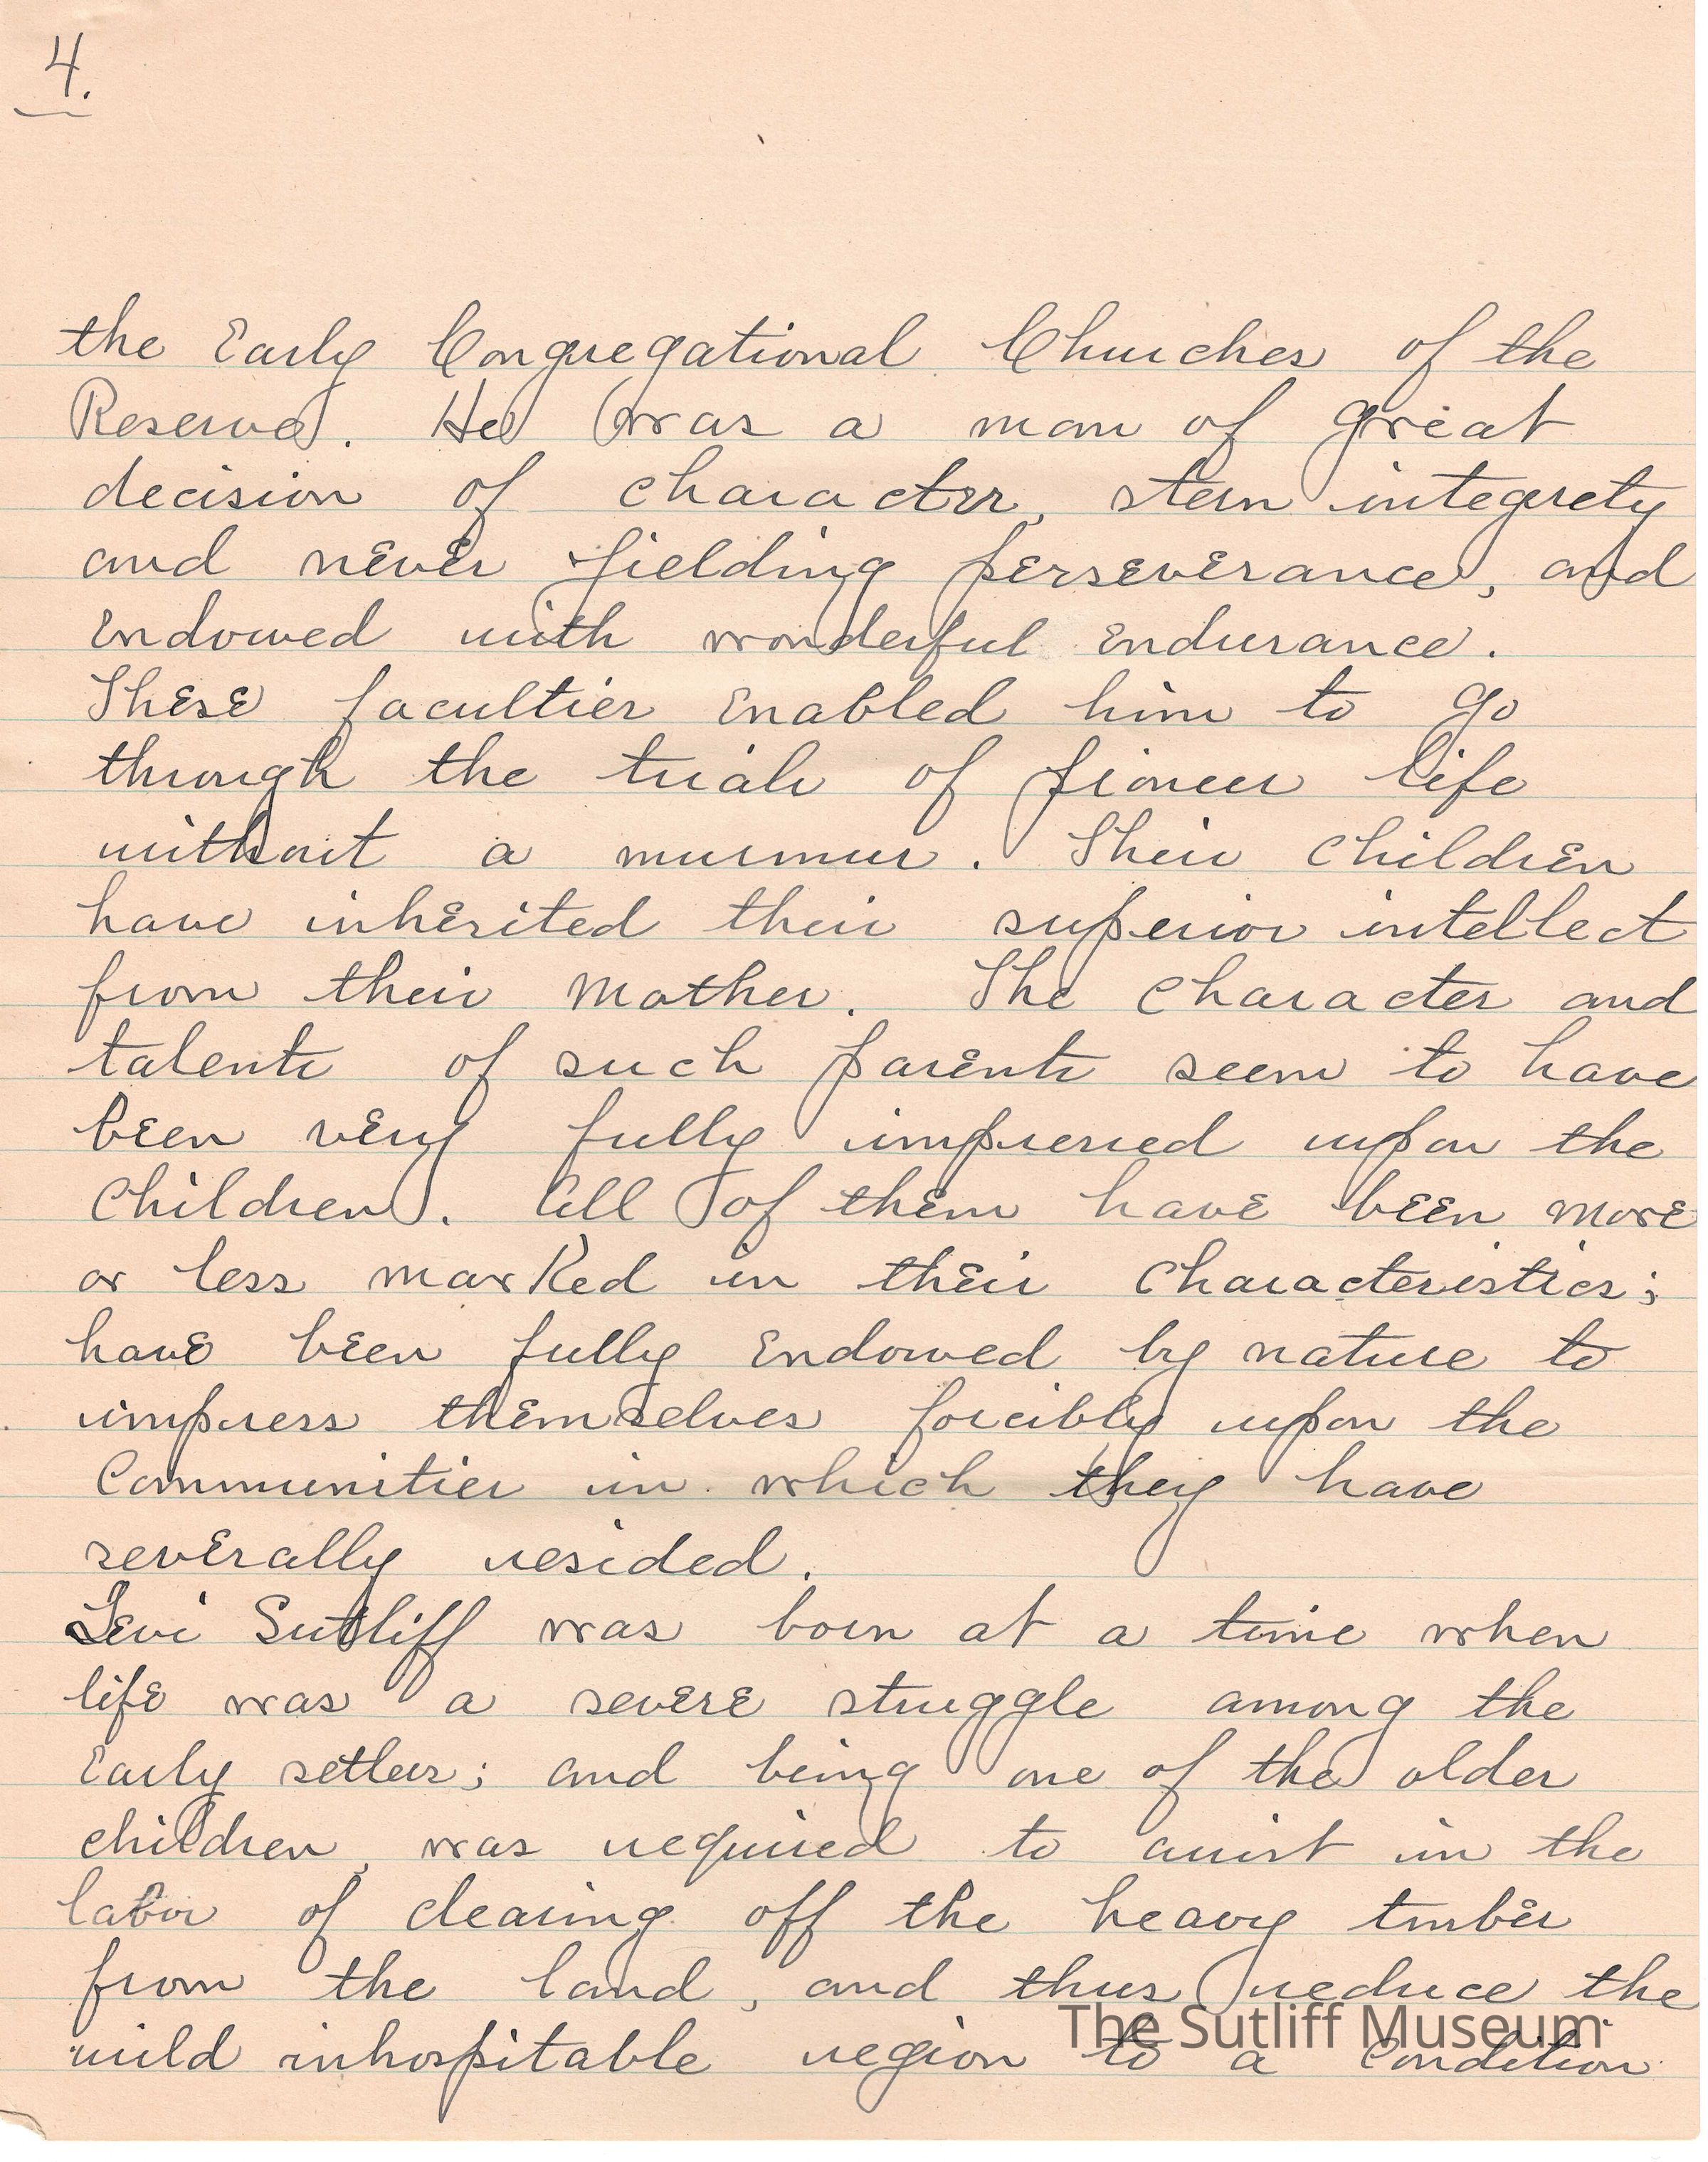 4.
the Early Congregational Churches of the
Reserve. He was a man of great
decision of character, stern integrety
and never yielding perseverance, and
Endowed with wonderful Endurance.
These faculties Enabled him to go
through the trials of pioneer life
without a murmur. Their Children
have inherited their superior intellect
from their Mother. The Character and
talents of such parents seem to have
been very fully impressed upon the
Children. All of them have been more
or less marked in their Characteristics;
have been fully Endowed by nature to
impress themselves forcibly upon the
Communities in which they have
severally resided.
Levi Sutliff was born at a time when
life was a severe struggle among the
Early setlers; and being one of the older
children, was required to assist in the
labor of clearing off the heavy timber
from the land, and thus reduce the
wild inhospitable region to a Condition
The Sutliff Museum